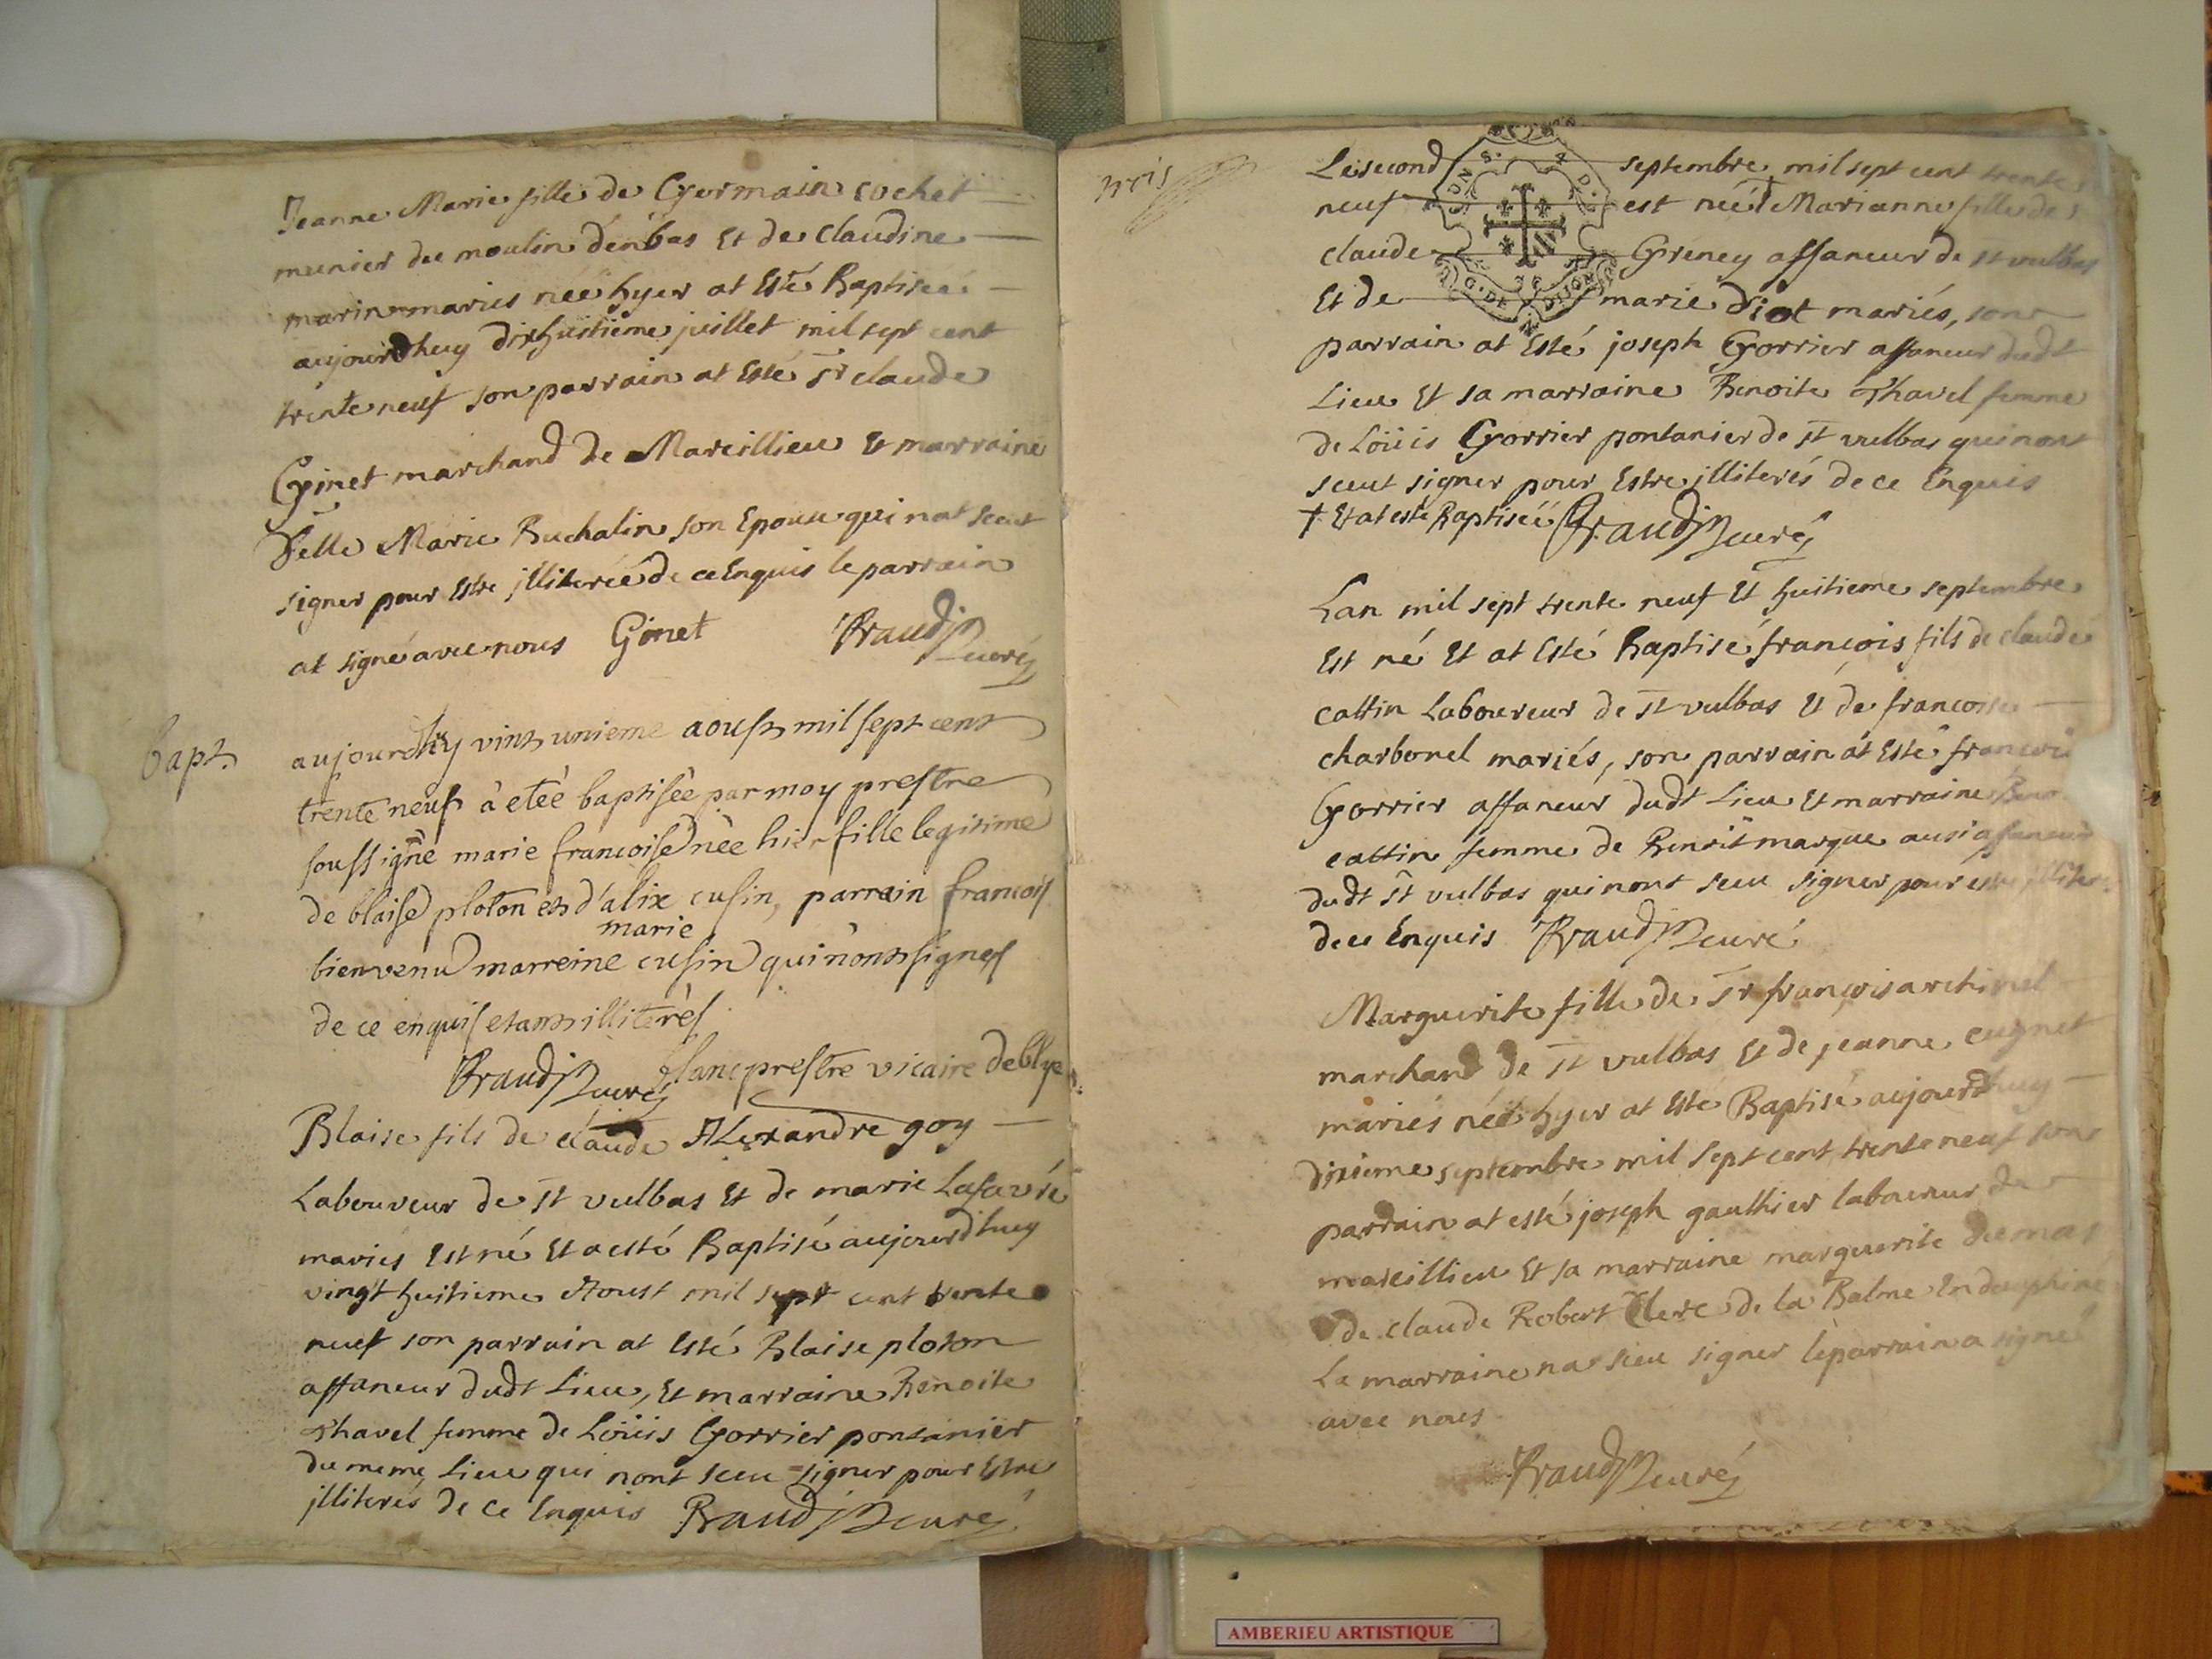 Jeanne Marie fille de Germain cochet
munier du moulin d'enbas Et de Claudine
marin maries neé hyer at Esté Baptiseé
aujourdhuy dixhuitieme juillet mil sept cent
trente neuf son parrain at Esté Sr claude
Ginet marchand de Marcillieu Et marraine
delle Marie Buchalin son Epouse qui nat sceut
signer pour Estre jlliterée de ce Enquis le parrain
at signé avec nous Ginet Braud curé
bapt.
aujourdhuy vint unieme aoust mil sept cent
trente neuf à etée baptisée par moy prestre
soussigné marie francoise née hier fille legitime
de blaise ploton et d'alix cusin, parrein francois
marie
bienvenu marreine cusin qui n'ont signes
de ce enquis etant illiterés
Braud curé blanc prestre vicaire de blye
Blaise fils de claude ALexandre goy
Laboureur de St vulbas Et de marie
mariés Est né Et a esté Baptisé aujourdhuy
vingt huitieme Aoust mil sept cent trente
neuf son parrain at Esté Blaise ploton
affaneur dudt Lieu, Et marraine Benoite
Thavel femme de Loüis Gorrier pontanier
du meme Lieu qui nont sceu signer pour Estre
jlliterés de ce Enquis Braud curé
trois
Le second septembre mil sept cent trente
neuf est neé † Marianne fille de
claude Greney affaneur de St vulbas
Et de marie diot mariés, son
parrain at Esté joseph Gorrier affaneur dudt
Lieu Et sa marraine Benoite Thavel femme
de Loüis Gorrier pontanier de St vulbas qui nont
sceut signer pour Estre jlliterés de ce Enquis
† Et at esté Baptiseé Braud curé
Lan mil sept trente neuf Et huitieme septembre
Est né Et at Esté Baptisé françois fils de claude
cattin Laboureur de St vulbas Et de francoise
charbonel mariés, son parrain at Esté francois
Gorrier affaneur dudt Lieu Et marraine
cattin femme de Benoit marque ausi affaneur
dudt St vulbas qui nont sceu signer pour estre
de ce Enquis Braud curé
Marguerite fille de Sr françois
marchand de St vulbas Et de jeanne cugnet
mariés neé hyer at Esté Baptisé aujourdhuy
dixieme septembre mil sept cent trente neuf son
parrain at esté joseph gauthier laboureur de
marcillieu Et sa marraine marguerite dumas
de claude Robert Clerc de la Balme En dauphine
La marraine na sceu signer le parrain a signé
avec nous
Braud curé
AMBERIEU ARTISTIQUE